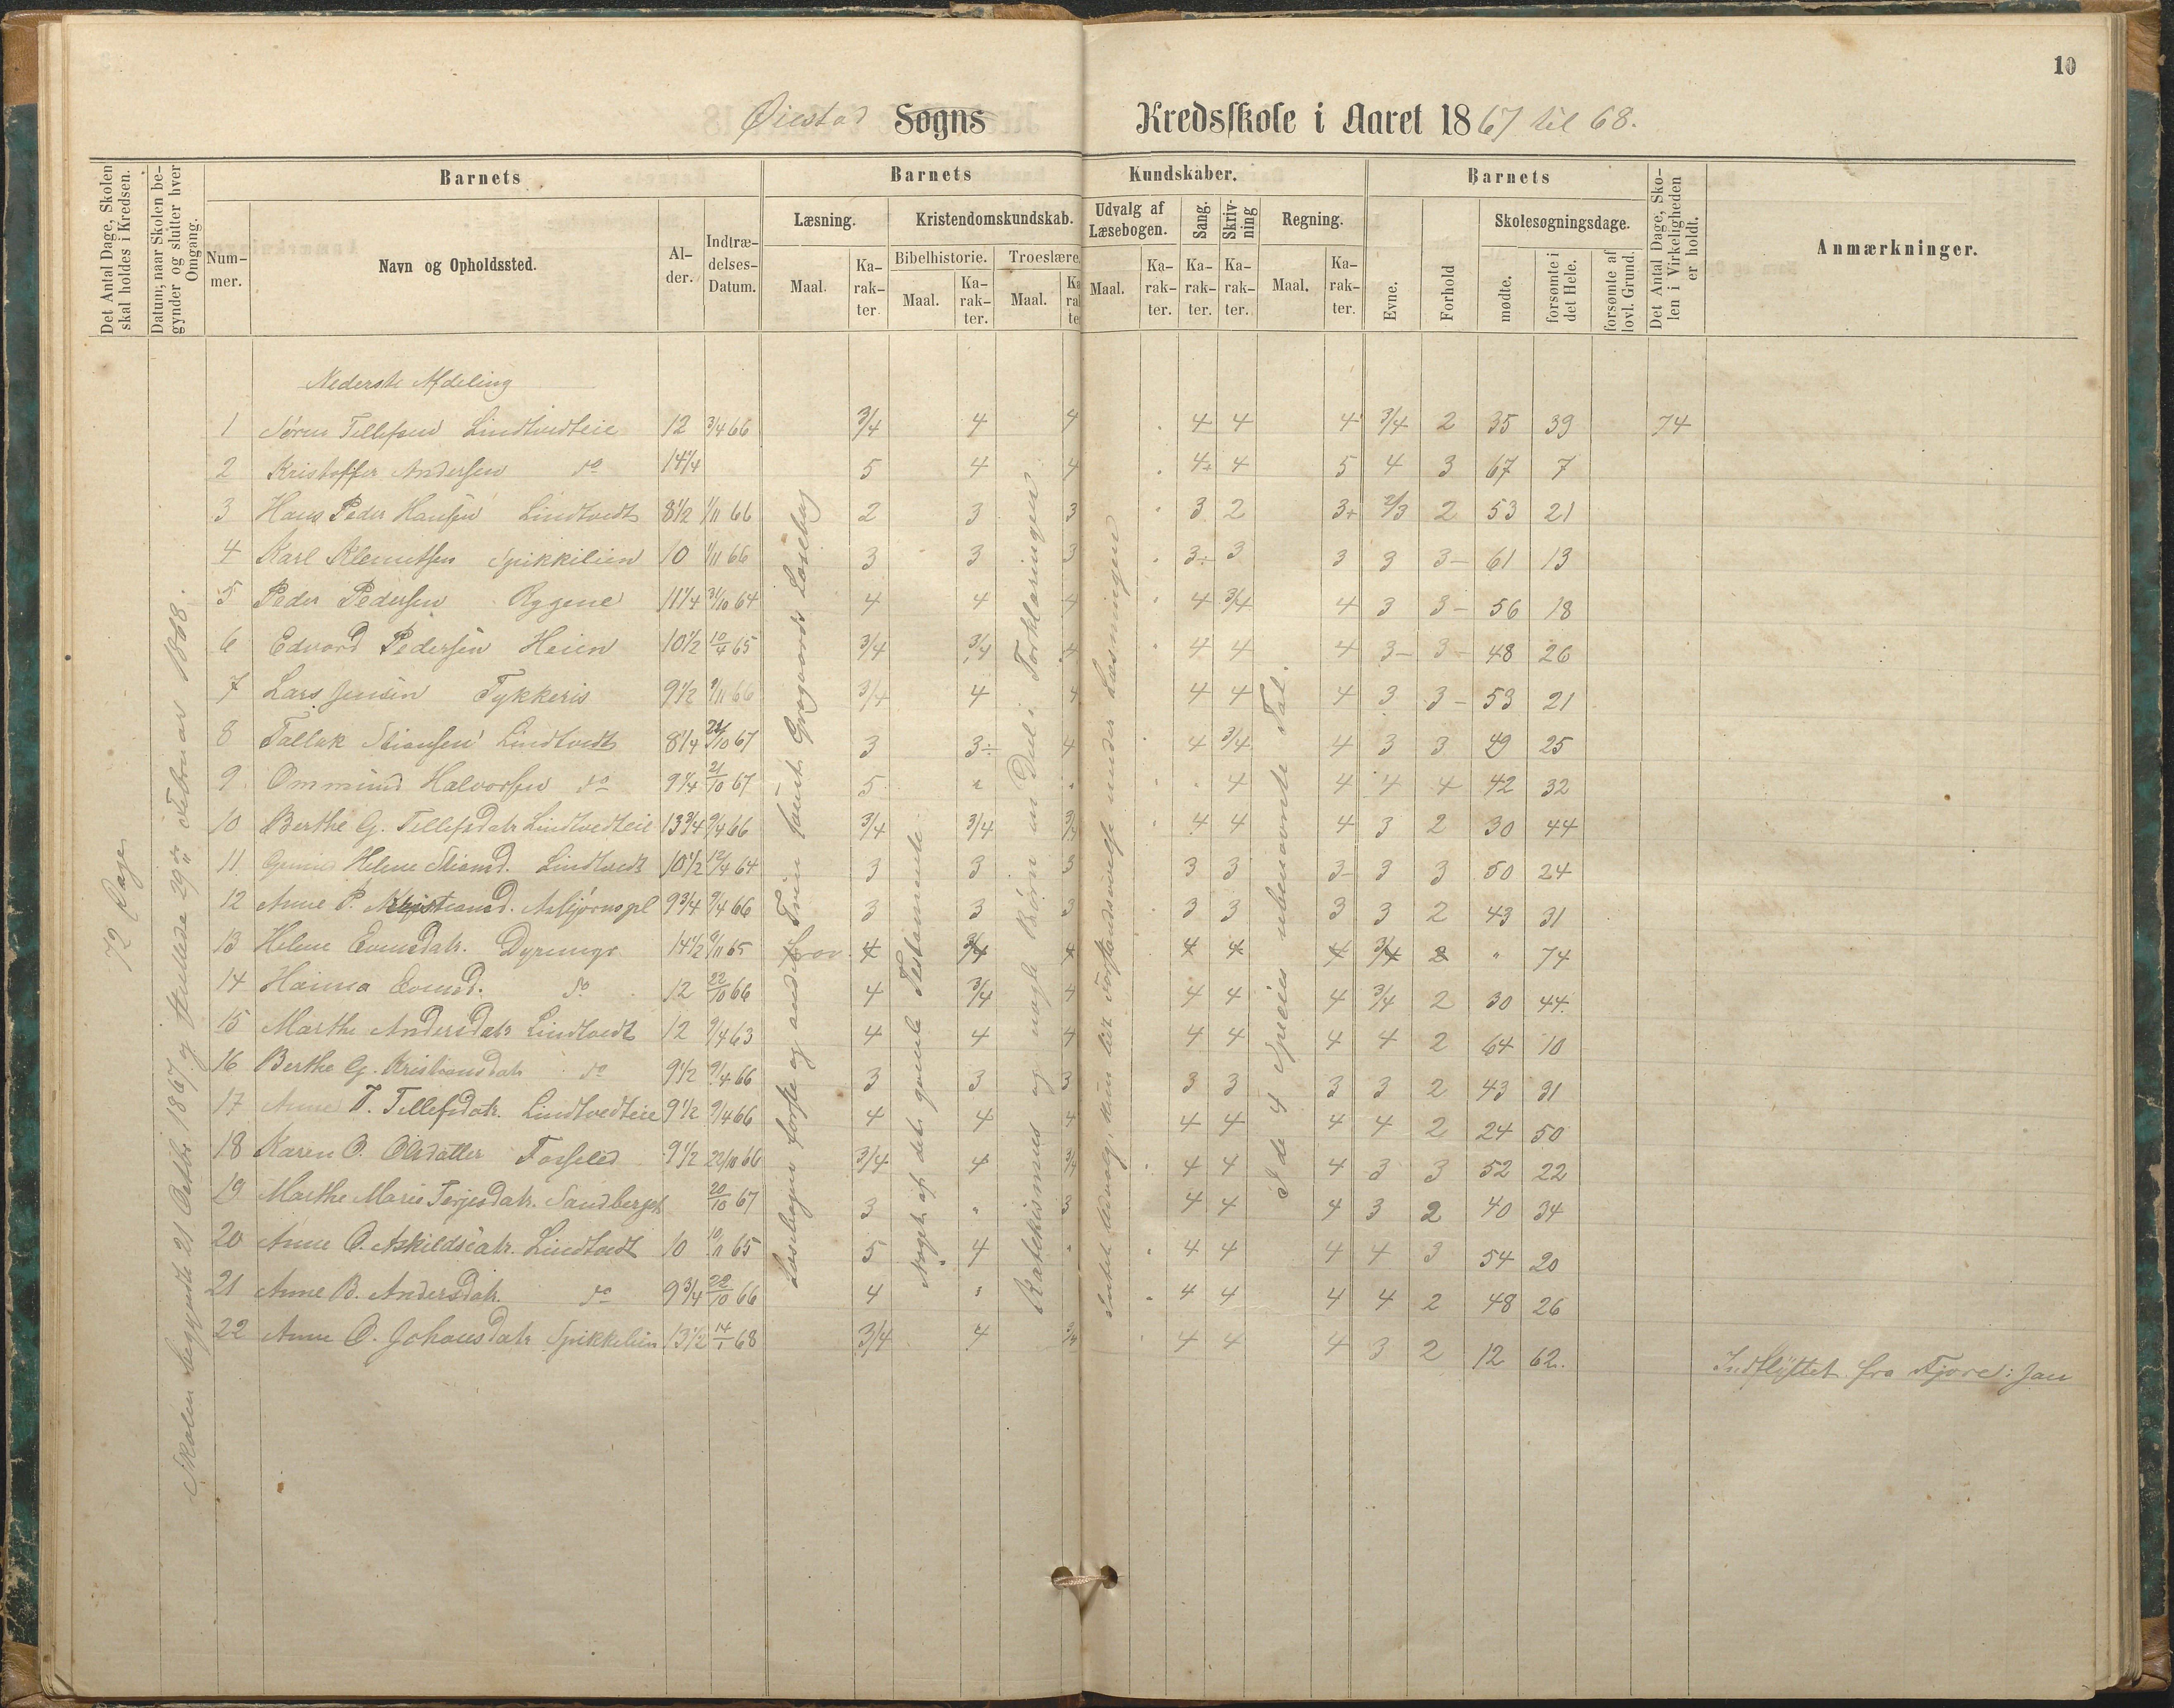 10
Øiestad Sogns Kredsskole i Aaret 1867 til 68.
Det Antal Dage, Skolen skal holdes i Kredsen.
Datum, naar Skolen begynder og slutter hver Omgang.
Barnets
Barnets Kundskaber.
Barnets
Det Antal Dage, Skolen i Virkeligheden er holdt.
Anmærkninger.
Nummer.
Navn og Opholdssted.
Alder.
Indtrædelses-Datum.
Læsning.
Kristendomskundskab.
Udvalg af Læsebogen.
Sang.
Skrivning
Regning.
Evne.
Forhold
Skolesøgningsdage.
Bibelhistorie.
Troeslære.
Maal.
Karakter.
mødte.
forsømte i det Hele.
forsømte af lovl. Grund.
72 Dage
Skolen begyndte 21 Octbr. 1867 og sluttede 29de Februar 1868.
Læsebogen første og andet Trin samt Gregaards Læsebog
Noget af det gamle Testamente
Katekismus og nogle Børn en Deel i Forklaringen
Intet Udvalg, kun lidt Forstandsøvelse under Læsningen
I de 4 Species ubenævnte Tal.
Nederste Afdeling
1 Søren Tellefsen Lindtvedteie 12 3/4 66 3/4 4 4 4 4 4 3/4 2 35 39 74
2 Kristoffer Andersen do 14 1/4 5 4 4 4+ 4 5 4 3 67 7
3 Hans Peder Hansen Lindtvedt 8 1/2 1/11 66 2 3 3 3 2 3+ 2/3 2 53 21
4 Karl Klemetsen Spikkilien 10 1/11 66 3 3 3 3÷ 3 3 3 3- 61 13
5 Peder Pedersen Rygene 11 1/4 31/10 64 4 4 4 4 3/4 4 3 3- 56 18
6 Edvard Pedersen Heien 10 1/2 10/4 65 3/4 3/4 4 4 4 4 3- 3- 48 26
7 Lars Jensen Tykkeris 9 1/2 9/11 66 3/4 4 4 4 4 4 3 3- 53 21
8 Tallak Stiansen Lindtvedt 8 1/4 21/10 67 3 3÷ 4 4 3/4 4 3 3 49 25
9 Ommund Halvorsen do 9 1/4 21/10 67 5 " " 4 4 4 4 42 32
10 Berthe G. Tellefsdatr Lindtvedteie 13 3/4 9/4 66 3/4 3/4 4 4 4 3 2 30 44
11 Helene Stiansd. Lindtvedt 10 1/2 12/4 64 3 3 3 3 3 3- 3 3 50 24
12 Anne P. Kristiansd. Asbjørnspl 9 3/4 9/4 66 3 3 3 3 3 3 3 2 43 31
13 Helene Evensdatr. 14 1/2 9/11 65 4 3/4 4 4 4 4 3/4 2 " 74
14 Evensd. do 12 22/10 66 4 3/4 4 4 4 4 3/4 2 30 44
15 Marthe Andersdatr Lindtvedt 12 9/4 63 4 4 4 4 4 4 4 2 64 10
16 Berthe G. Kristiansdatr do 9 1/2 9/4 66 3 3 3 3 3 3 3 2 43 31
17 Anne T. Tellefsdatr. Lindtvedteie 9 1/2 9/4 66 4 4 4 4 4 4 4 2 24 50
18 Karen O. Olsdatter 9 1/2 22/10 66 3/4 4 3/4 4 4 4 3 3 52 22
19 Marthe Marie Terjesdatr. Sandberget 20/10 67 3 " 3 4 4 4 3 2 40 34
20 Anne O. Askildsdatr. Lindtvedt 10 10/11 65 5 4 " 4 4 4 4 3 54 20
21 Anne B. Andersdatr. do 9 3/4 22/10 66 4 " 4 4 4 4 2 48 26
22 Anne O. Johansdatr Spikkelien 13 1/2 14/1 68 3/4 4 3/4 4 4 4 3 2 12 62. Indflyttet fra Fjære i Jan